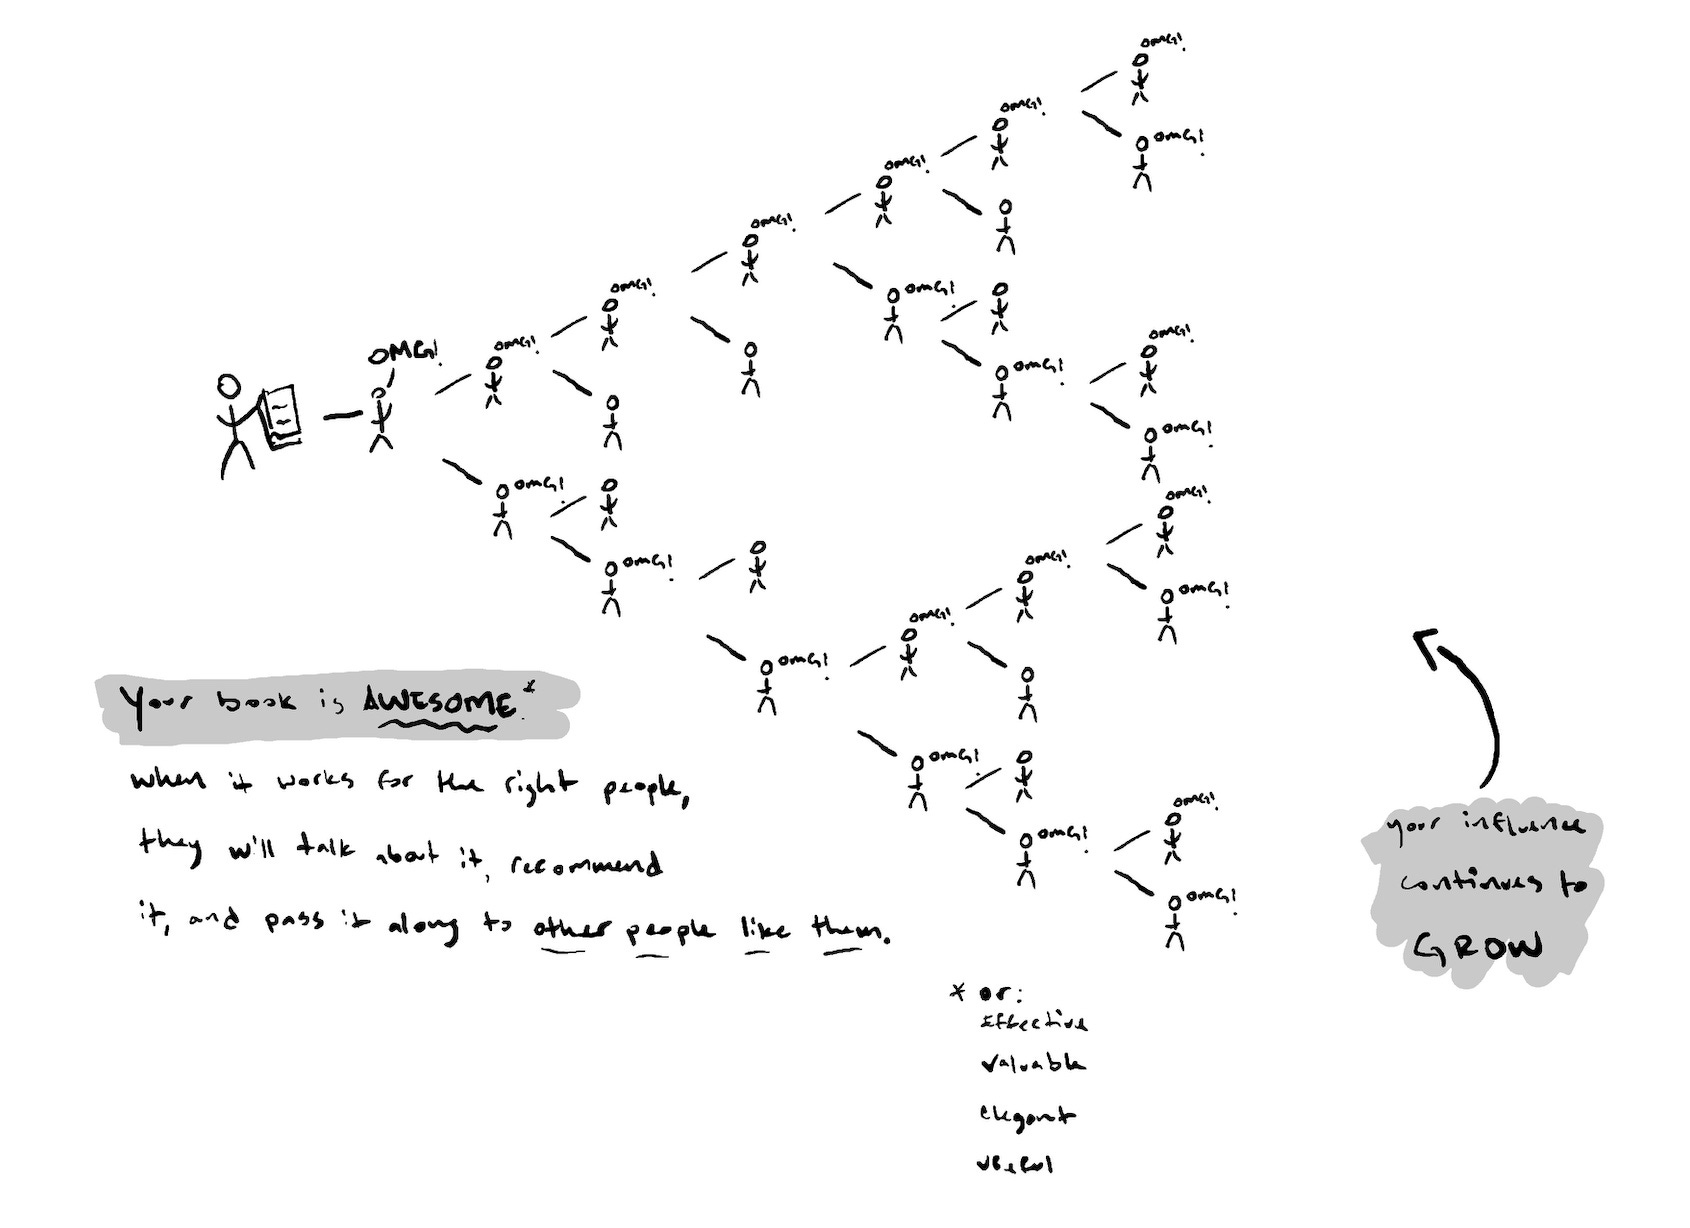 OMG!
OMG!
OMG!
OMG!
OMG!
OMG!
OMG!
OMG!
OMG!
OMG!
OMG!
OMG!
OMG!
OMG!
OMG!
OMG!
OMG!
OMG!
OMG!
OMG!
OMG!
OMG!
OMG!
Your book is AWESOME*.
when it works for the right people,
they will talk about it, recommend
it, and pass it along to other people like them.
your influence
continues to
GROW
* or:
Effective
valuable
elegant
useful